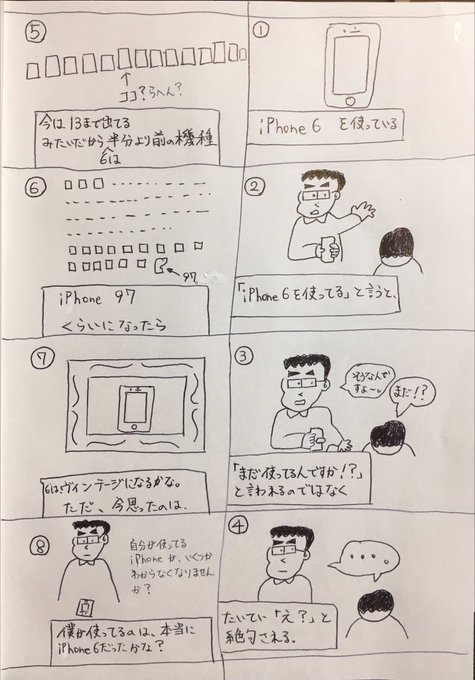 ①
iPhone 6 を使っている
②
「iPhone 6を使ってる」と言うと、
③
そうなんで
すよー。
まだ!?
「まだ使ってるんですか!?」
と言われるのではなく
④
・・・
たいてい「え?」と
絶句される。
⑤
ココ?らへん?
今は13まで出てる
みたいだから半分より前の機種
6は
⑥
97
iPhone 97
くらいになったら
⑦
6はヴィンテージになるかな。
ただ、今思ったのは、
⑧
自分が使ってる
iPhoneが、いくつか
わからなくなりません
か?
僕が使ってるのは、本当に
iPhone 6だったかな?